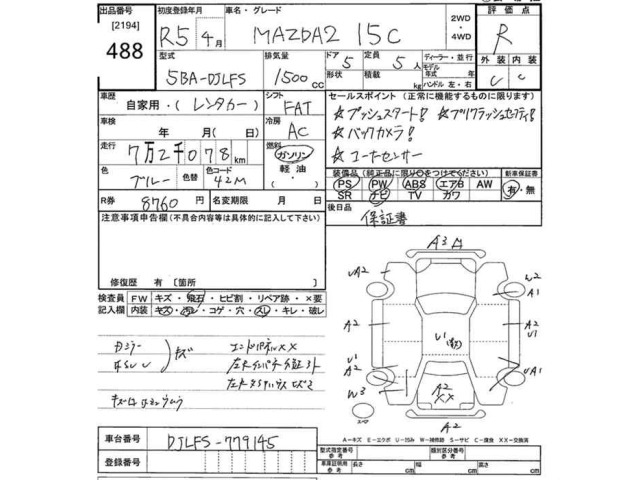 出品番号 初度登録年月 車名・グレード 2WD 評価点
[2194] R5年4月 MAZDA2 15C 4WD R
488
型式 排気量 ドア 定員 ディーラー・並行 外装 内装
5BA-DJLFS 1500cc 5 5人 モデル年式 年 C C
形状 積載 kg ハンドル 左・右
車歴 シフト セールスポイント (正常に機能するものに限ります)
自家用・(レンタカー) FAT ☆プッシュスタート! ☆プリクラッシュセーフティ!
車検 冷房 ☆バックカメラ!
年 月(日) AC
走行 燃料 ☆コーナーセンサー
7万2千078km ガソリン
軽油・
色 色替 色コード 装備品 (純正品に限り〇をつけてください) 新車保証書
ブルー 42M PS PW ABS エアB AW 有・無
SR ナビ TV カワ
R券 8760円 名変期限 月 日 後日品
保証書
注意事項申告欄(不具合内容等は具体的に記入して下さい)
修復歴 有 [箇所
検査員 FW キズ・飛石・ヒビ割・リペア跡・×要
記入欄 内装 キズ・汚レ・コゲ・穴・スレ・キレ・破レ
A3
A2
W2
A1
A2
A2
U1
U1
U1
A2
UA1
W3
A2
XX
A2
キズ
エンドパネルXX
A-キズ E-エクボ U-凹み W-補修跡 S-サビ C-腐食 XX-交換済
車台番号 DJLFS-779145
登録番号
型式指定番号 参考 類別区分番号 参考
車庫証明用 参考 長さ cm 幅 cm 高さ cm